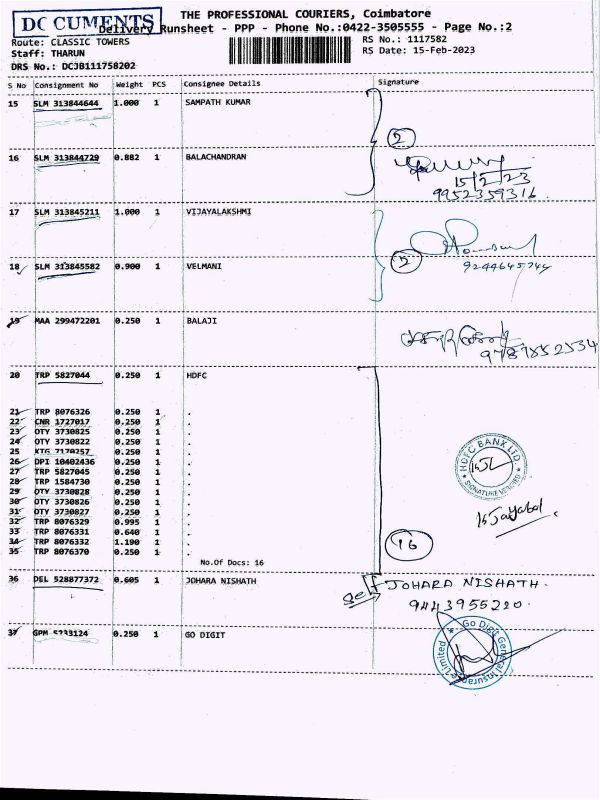 DOCUMENTS
THE PROFESSIONAL COURIERS, Coimbatore
Delivery Runsheet - PPP - Phone No.:0422-3505555 - Page No.:2
Route: CLASSIC TOWERS
RS No.: 1117582
Staff: THARUN
RS Date: 15-Feb-2023
DRS No.: DCJB111758202
S No Consignment No Weight PCS Consignee Details Signature
15 SLM 313844644 1.000 1 SAMPATH KUMAR
2
16 SLM 313844729 0.882 1 BALACHANDRAN
15/2/23
9952359316
17 SLM 313845211 1.000 1 VIJAYALAKSHMI
18 SLM 313845582 0.900 1 VELMANI
2
9244645744
19 MAA 299472201 0.250 1 BALAJI
9787852534
20 TRP 5827044 0.250 1 HDFC
21 TRP 8076326 0.250 1 .
22 CNR 1727017 0.250 1 .
23 OTY 3730825 0.250 1 .
24 OTY 3730822 0.250 1 .
25 KTG 7170257 0.250 1 .
26 DPI 10402436 0.250 1 .
27 TRP 5827045 0.250 1 .
28 TRP 1584730 0.250 1 .
29 OTY 3730828 0.250 1 .
30 OTY 3730826 0.250 1 .
31 OTY 3730827 0.250 1 .
32 TRP 8076329 0.995 1 .
33 TRP 8076331 0.640 1 .
34 TRP 8076332 1.190 1 .
35 TRP 8076370 0.250 1 .
No.Of Docs: 16
16
HDFC BANK LTD.
SIGNATURE VERIFIED
36 DEL 528877372 0.605 1 JOHARA NISHATH
Self JOHARA NISHATH.
9443955220.
37 GPM 5233124 0.250 1 GO DIGIT
Go Digit General Insurance Limited